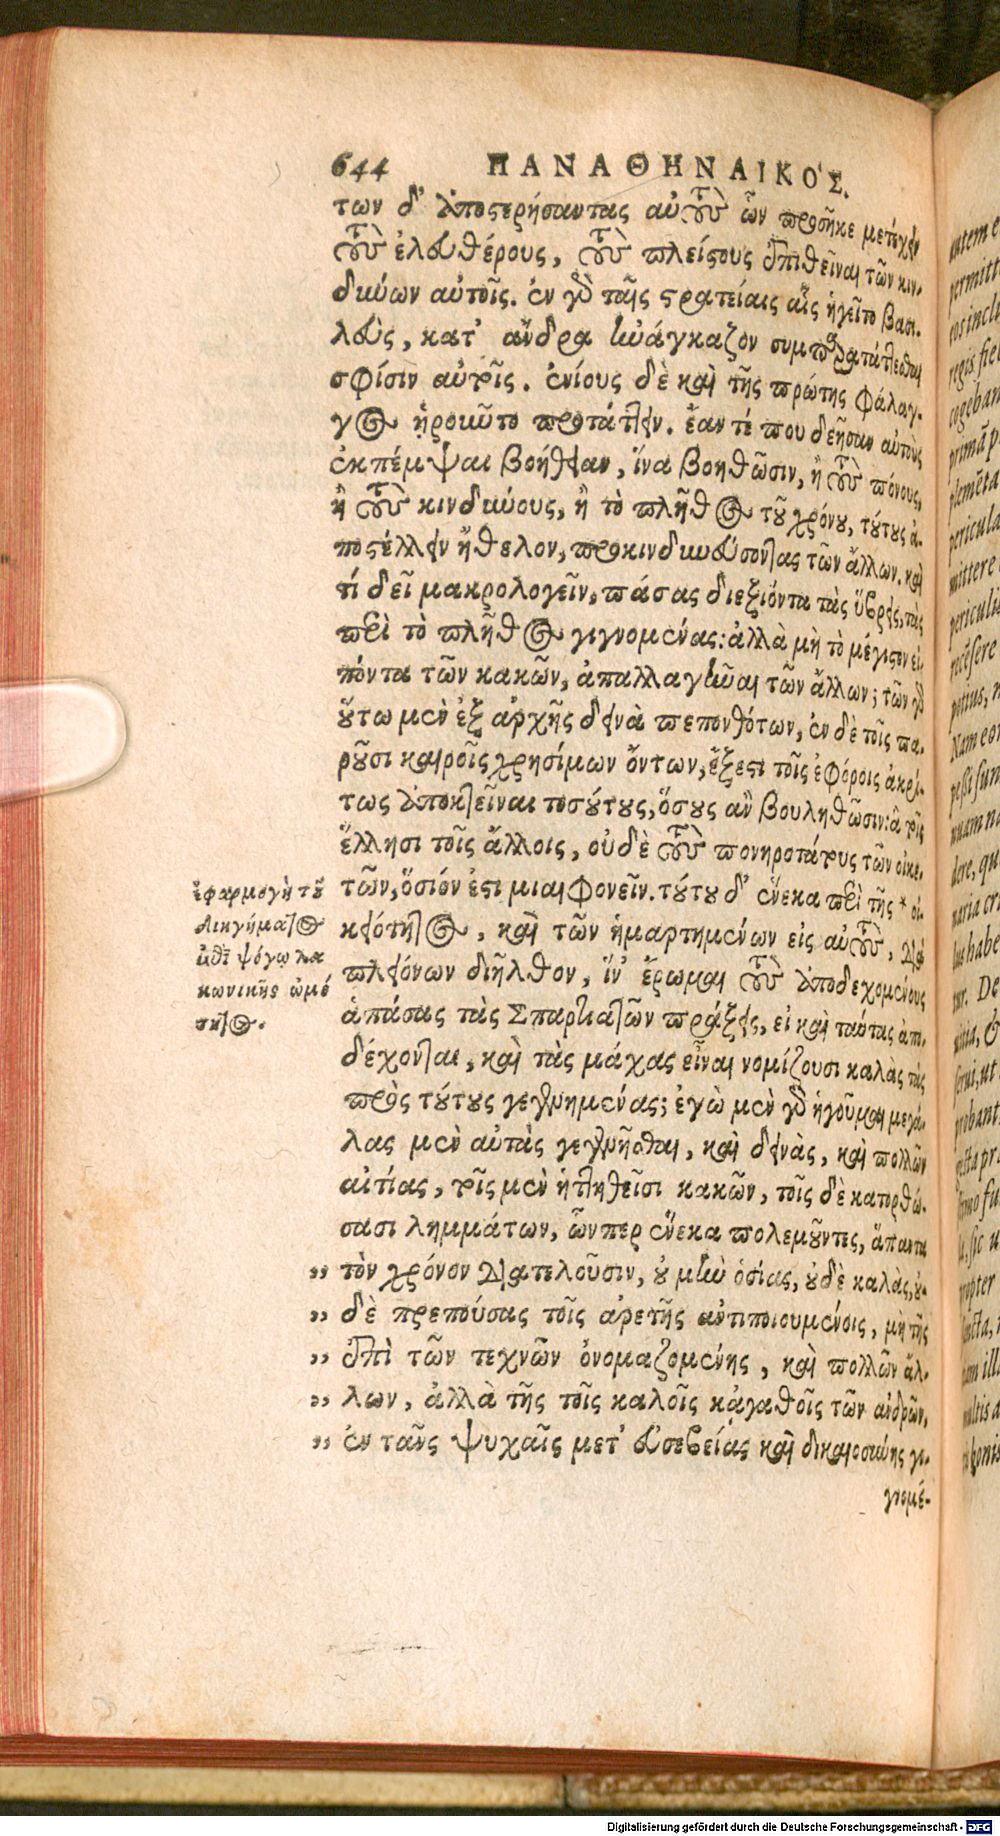 644 ΠΑΝΑΘΗΝΑΙΚΟΣ.
των δ' ἀποστερήσαντας αὐτοὺς ὧν προσῆκε μετέχειν
τοὺς ἐλευθέρους, τοὺς πλείστους ἐπιθεῖναι τῶν κιν-
δύνων αὐτοῖς. ἐν γὰρ ταῖς στρατείαις αἷς ἡγεῖτο βασι-
λεὺς, κατ' ἄνδρα ἠνάγκαζον συμπαρατάττεσθαι
σφίσιν αὐτοῖς. ἐνίους δὲ καὶ τῆς πρώτης φάλαγ-
γος ᾑροῦντο προτάττειν. ἔαν τέ που δεῆσαν αὐτοὺς
ἐκπέμψαι βοήθειαν, ἵνα βοηθῶσιν, ἢ τοὺς πόνους,
ἢ τοὺς κινδύνους, ἢ τὸ πλῆθος τοῦ χρόνου, τούτους ἀ-
ποστέλλειν ἤθελον, προκινδυνεύσοντας τῶν ἄλλων. καὶ
τί δεῖ μακρολογεῖν, πάσας διεξιόντα τὰς ὕβρεις, τὰς
περὶ τὸ πλῆθος γιγνομένας: ἀλλὰ μὴ τὸ μέγιστον εἰ-
πόντα τῶν κακῶν, ἀπαλλαγῆναι τῶν ἄλλων; τῶν γὰρ
οὕτω μὲν ἐξ ἀρχῆς δεινὰ πεπονθότων, ἐν δὲ τοῖς πα-
ροῦσι καιροῖς χρησίμων ὄντων, ἔξεστι τοῖς ἐφόροις ἀκρί-
τως ἀποκτεῖναι τοσούτους, ὅσους ἂν βουληθῶσιν: ἃ τοῖς
ἕλλησι τοῖς ἄλλοις, οὐδὲ τοὺς πονηροτάτους τῶν οἰκε-
τῶν, ὅσιόν ἐστι μιαιφονεῖν. τούτου δ' ἕνεκα περὶ τῆς * οἰ-
κειότητος, καὶ τῶν ἡμαρτημένων εἰς αὐτοὺς, διὰ
πλειόνων διῆλθον, ἵν' ἔρωμαι τοὺς ἀποδεχομένους
ἁπάσας τὰς Σπαρτιατῶν πράξεις, εἰ καὶ ταύτας ἀπο-
δέχονται, καὶ τὰς μάχας εἶναι νομίζουσι καλὰς τὰς
πρὸς τούτους γεγενημένας; ἐγὼ μὲν γὰρ ἡγοῦμαι μεγά-
λας μὲν αὐτὰς γεγενῆσθαι, καὶ δεινὰς, καὶ πολλῶν
αἰτίας, τοῖς μὲν ἡττηθεῖσι κακῶν, τοῖς δὲ κατορθώ-
σασι λημμάτων, ὧνπερ ἕνεκα πολεμοῦντες, ἅπαντα
„ τὸν χρόνον διατελοῦσιν, οὐ μὴν ὁσίας, οὐδὲ καλὰς, οὐ-
„ δὲ πρεπούσας τοῖς ἀρετῆς ἀντιποιουμένοις, μὴ τῆς
„ ἐπὶ τῶν τεχνῶν ὀνομαζομένης, καὶ πολλῶν ἄλ-
„ λων, ἀλλὰ τῆς τοῖς καλοῖς κἀγαθοῖς τῶν ἀνδρῶν,
„ ἐν ταῖς ψυχαῖς μετ' εὐσεβείας καὶ δικαιοσύνης γι-
γνομέ-
ἐφαρμογὴ τοῦ
διηγήματος
ψόγῳ λα
κωνικῆς ὠμό
τητος.
autem e
permitt
eos incl
regis fie
cogeban
primã p
plemẽta
pericula
mittere
periculi
recẽsere
potius, n
Nam eor
peßi sun
nuam na
dere, qu
naria cr
lus habe
tur. De
serui, ut
probant
gesta pr
propter
multis a
Digitalisierung gefördert durch die Deutsche Forschungsgemeinschaft - DFG